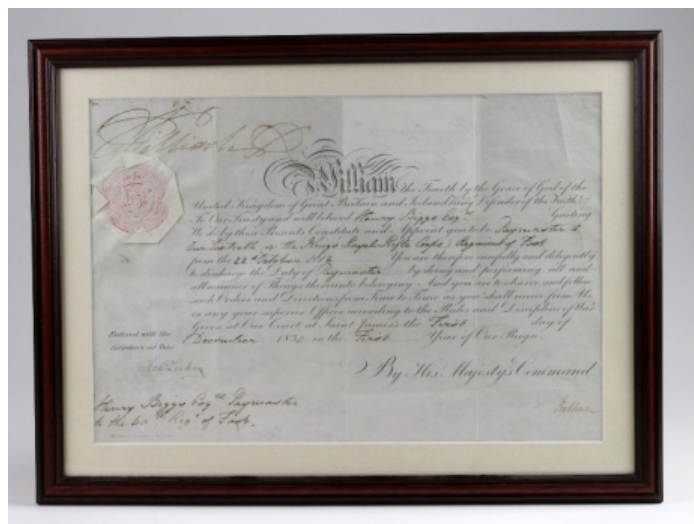 William R
William the Fourth by the Grace of God of the
United Kingdom of Great Britain and Ireland King, Defender of the Faith &c
To Our Trusty and well beloved Henry Biggs Esqr Greeting
We do by these Presents Constitute and Appoint you to be Paymaster to
Our Sixtieth or the Kings Royal Rifle Corps) Regiment of Foot
from the 22d October 1812 You are therefore carefully and diligently
to discharge the Duty of Paymaster by doing and performing all and
all manner of Things thereunto belonging And you are to observe and follow
such Orders and Directions from Time to Time as you shall receive from Us
or any your superior Officer according to the Rules and Discipline of War
Given at Our Court at Saint James's the First day of
December 1832 in the First Year of Our Reign
Entered with the
Secretary at War
By His Majesty's Command
Henry Biggs Esqre Paymaster
to the 60th Regt of Foot.